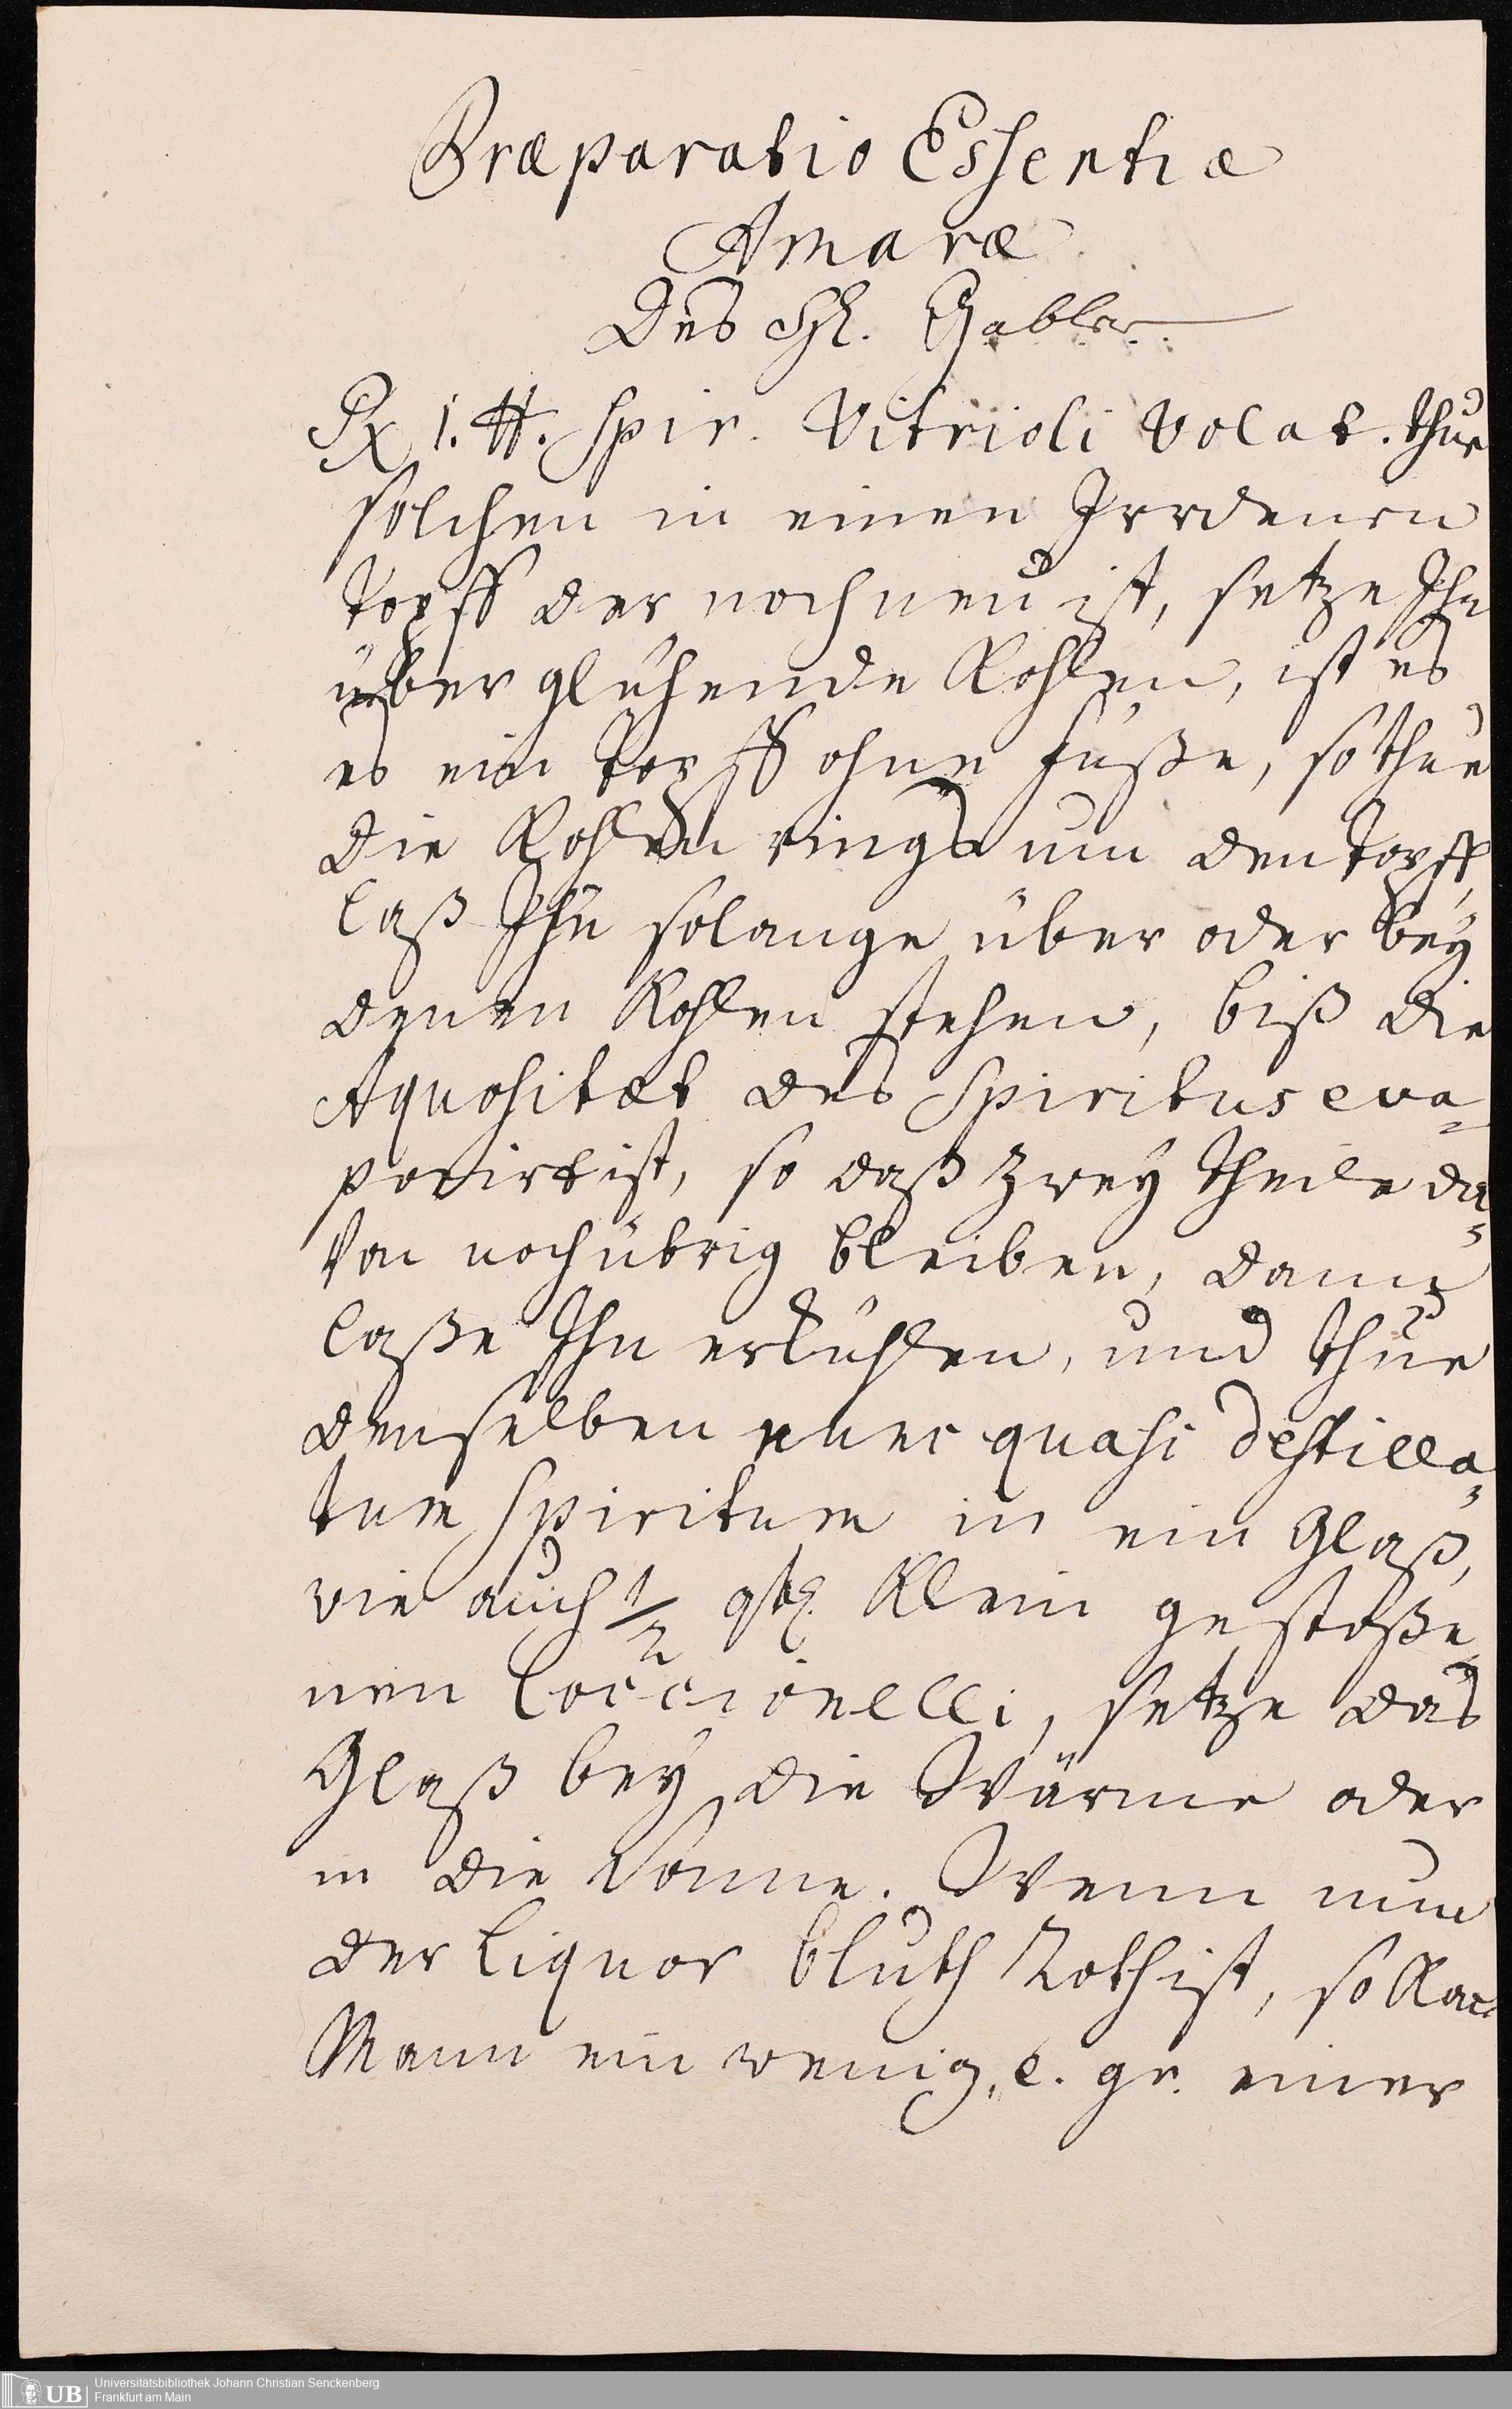 Præparatio Essentiæ
Amaræ
des H. Gabler.
Rx 1. ℔. Spir. Vitrioli Volat. thue
solchen in einen Irrdenen
Topff der noch neu ist, setze Ihn
über glühende Kohlen, ist es
es ein Topff ohne Füße, so thue
die Kohlen rings um den Topff,
laß Ihn solange über oder bey
denen Kohlen stehen, biß die
Aquositæt des Spiritus eva=
porirt ist, so daß zwey Theile da=
von noch übrig bleiben, dann
laße Ihn erkühlen, und thue
denselben nunc quasi destilla=
tum Spiritum in ein Glaß,
wie auch 1/2 qtl. Klein gestoße=
nen Coccionelli, setze das
Glaß bey die Wärme oder
in die Sonne. Wenn nun
der Liquor bluth Roth ist, so kan
Mann ein wenig, e. gr. einer
Universitätsbibliothek Johann Christian Senckenberg
Frankfurt am Main
UB